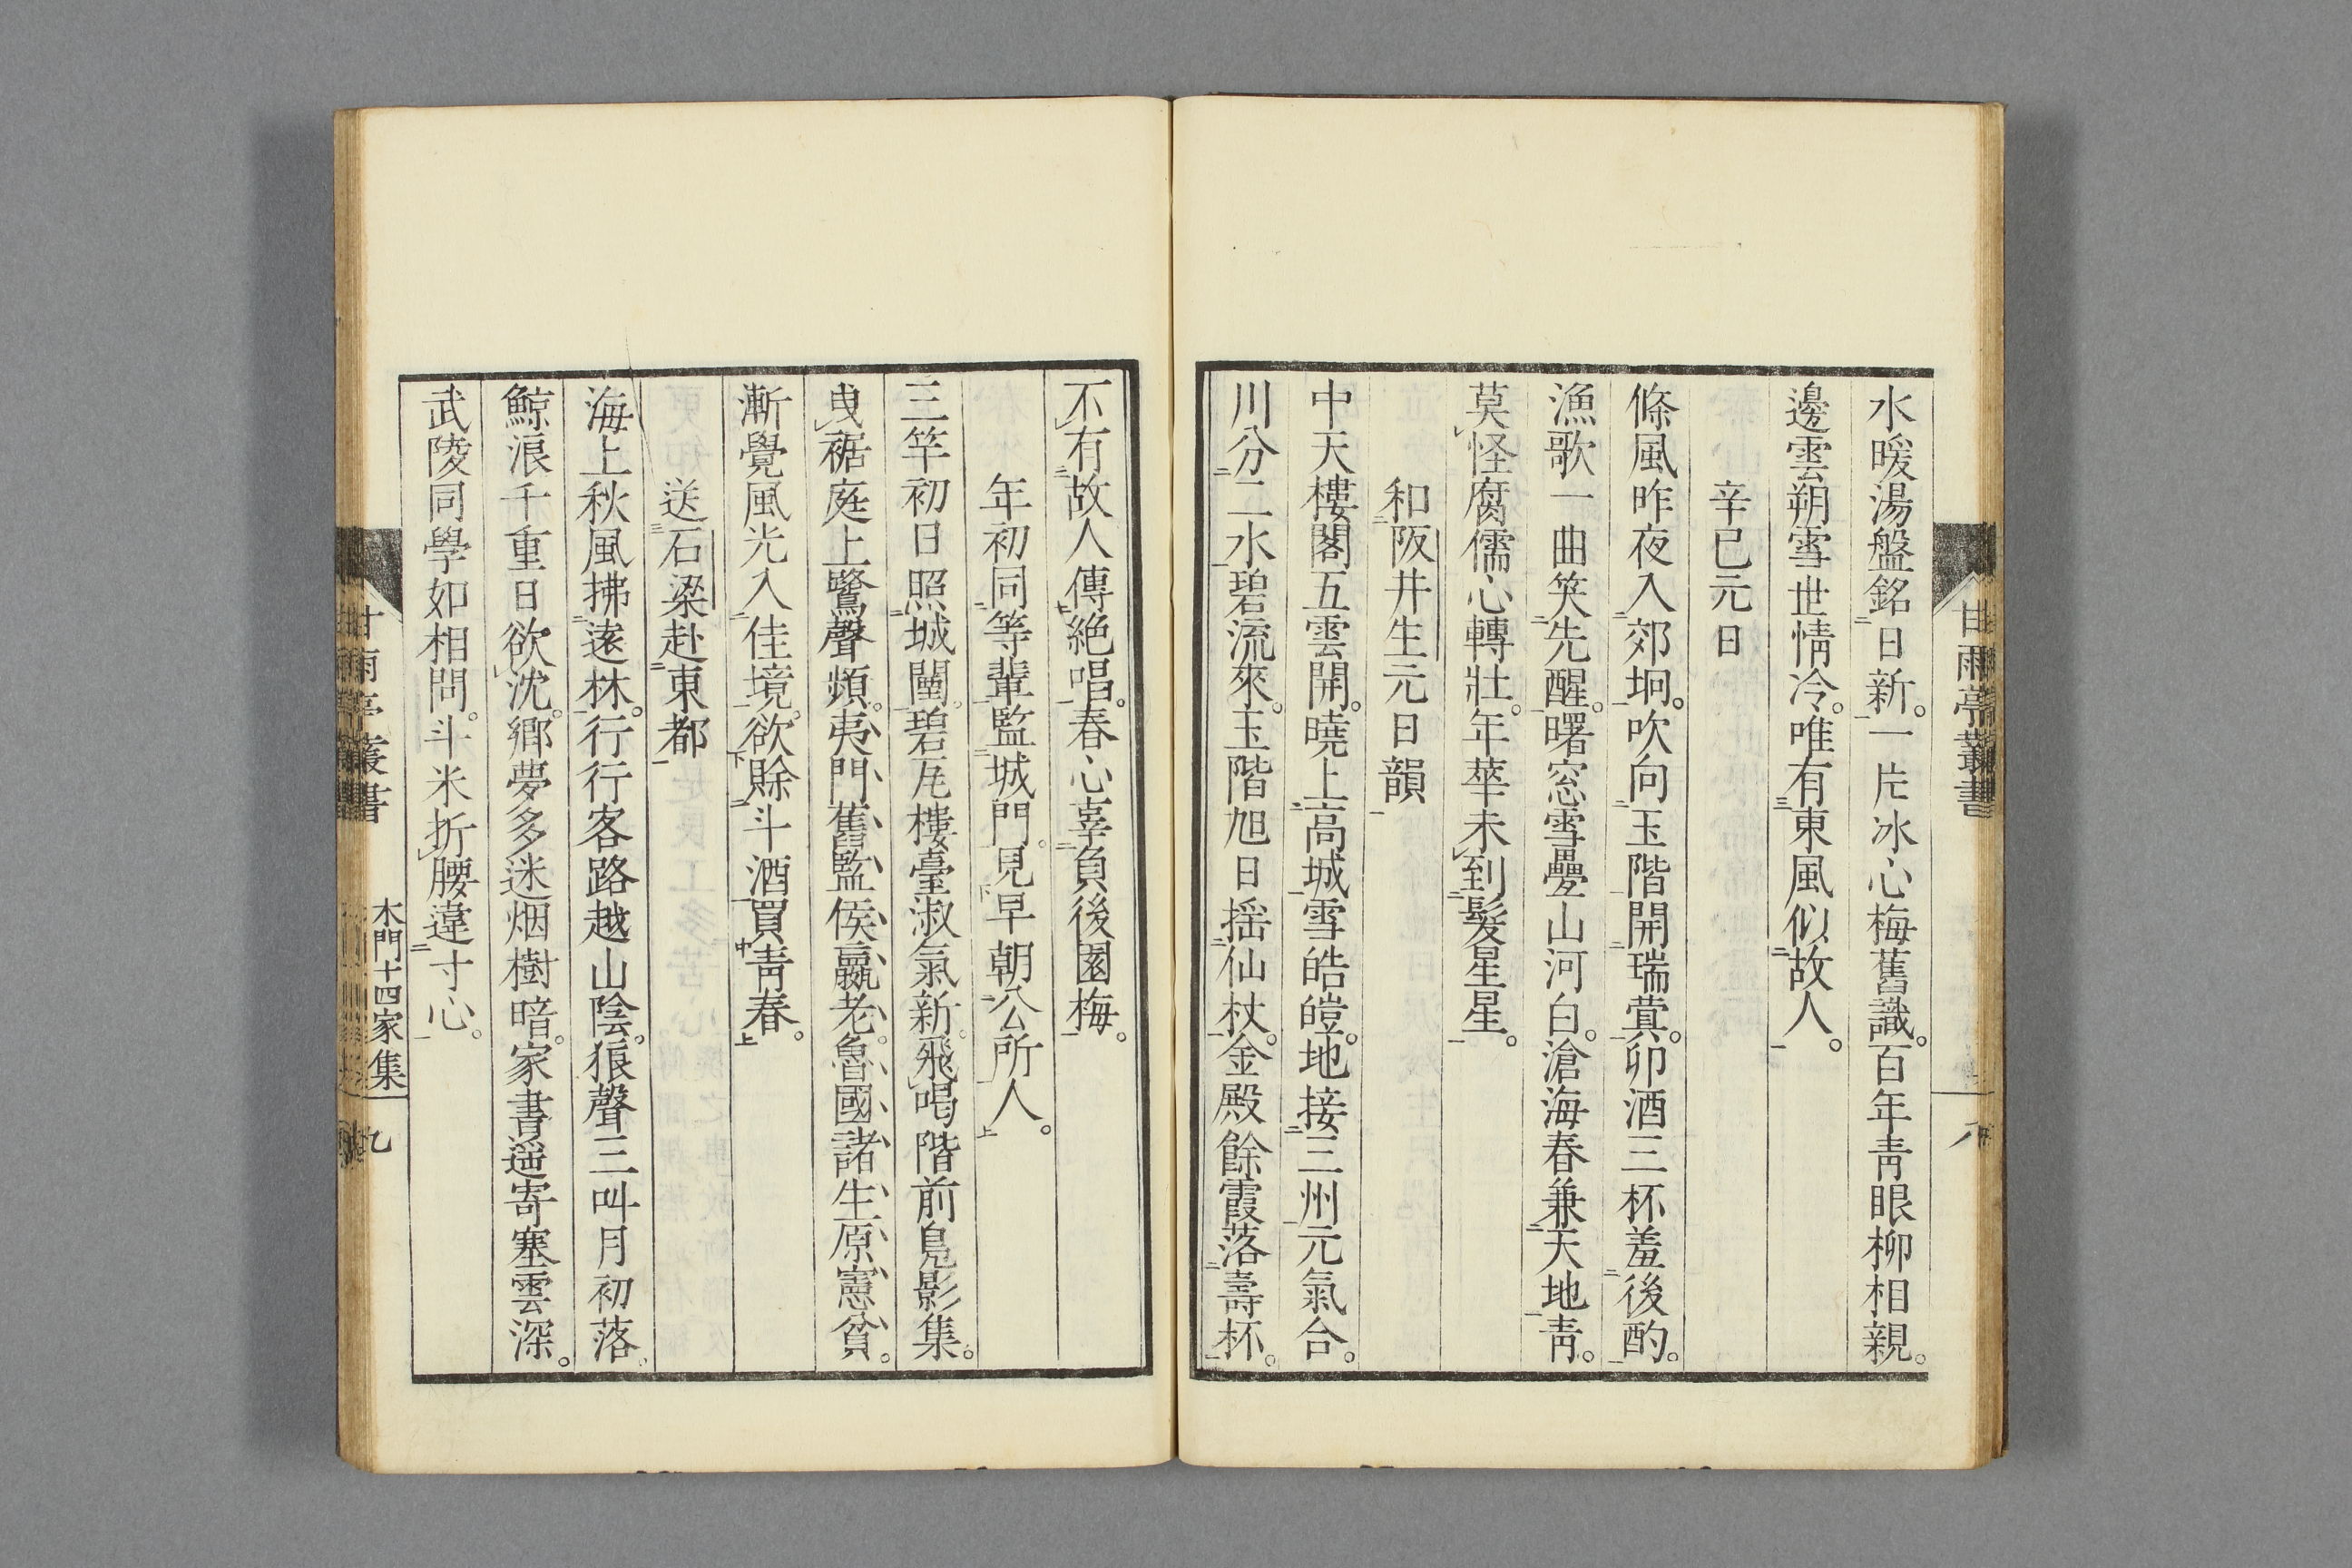 水暖湯盤銘日新。一片冰心梅舊識。百年靑眼柳相親。
邊雲朔雪世情冷。唯有東風似故人。
辛巳元日
條風昨夜入郊坰。吹向玉階開瑞蓂。卯酒三杯羞後酌。
漁歌一曲笑先醒。曙窓雪疊山河白。滄海春兼天地靑。
莫怪腐儒心轉壯。年華未到髮星星。
和阪井生元日韻
中天樓閣五雲開。曉上高城雪皓皚。地接三州元氣合。
川分二水碧流來。玉階旭日搖仙杖。金殿餘霞落壽杯。
甘雨亭叢書
八
不有故人傳絕唱。春心辜負後園梅。
年初同等輩監城門。見早朝公所人。
三竿初日照城闉。碧瓦樓臺淑氣新。飛喝階前鳧影集。
曳裾庭上鷺聲頻。夷門舊監侯嬴老。魯國諸生原憲貧。
漸覺風光入佳境。欲賖斗酒買靑春。
送石梁赴東都
海上秋風拂遠林。行行客路越山陰。猿聲三叫月初落。
鯨浪千重日欲沈。鄕夢多迷烟樹暗。家書遥寄塞雲深。
武陵同學如相問。斗米折腰違寸心。
甘雨亭叢書
木門十四家集
九